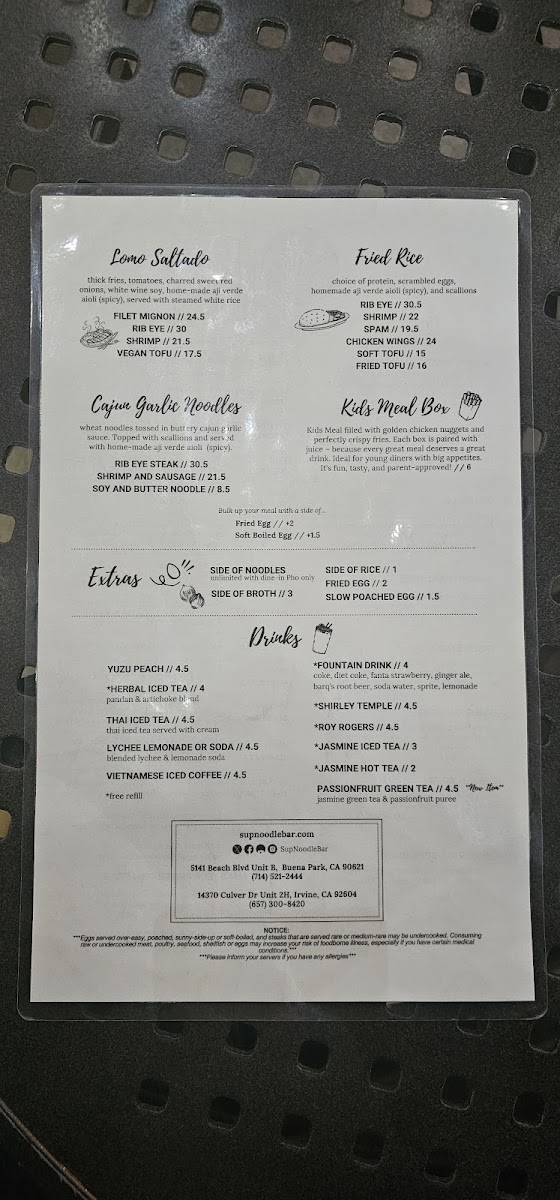 Lomo Saltado
thick fries, tomatoes, charred sweet red
onions, white wine soy, home-made aji verde
aioli (spicy), served with steamed white rice
FILET MIGNON // 24.5
RIB EYE // 30
SHRIMP // 21.5
VEGAN TOFU // 17.5
Fried Rice
choice of protein, scrambled eggs,
homemade aji verde aioli (spicy), and scallions
RIB EYE // 30.5
SHRIMP // 22
SPAM // 19.5
CHICKEN WINGS // 24
SOFT TOFU // 15
FRIED TOFU // 16
Cajun Garlic Noodles
wheat noodles tossed in buttery cajun garlic
sauce. Topped with scallions and served
with home-made aji verde aioli (spicy).
RIB EYE STEAK // 30.5
SHRIMP AND SAUSAGE // 21.5
SOY AND BUTTER NOODLE // 8.5
Kids Meal Box
Kids Meal filled with golden chicken nuggets and
perfectly crispy fries. Each box is paired with
juice – because every great meal deserves a great
drink. Ideal for young diners with big appetites.
It's fun, tasty, and parent-approved! // 6
Bulk up your meal with a side of...
Fried Egg // +2
Soft Boiled Egg // +1.5
Extras
SIDE OF NOODLES
unlimited with dine-in Pho only
SIDE OF BROTH // 3
SIDE OF RICE // 1
FRIED EGG // 2
SLOW POACHED EGG // 1.5
Drinks
YUZU PEACH // 4.5
*HERBAL ICED TEA // 4
pandan & artichoke blend
THAI ICED TEA // 4.5
thai iced tea served with cream
LYCHEE LEMONADE OR SODA // 4.5
blended lychee & lemonade soda
VIETNAMESE ICED COFFEE // 4.5
*free refill
*FOUNTAIN DRINK // 4
coke, diet coke, fanta strawberry, ginger ale,
barq's root beer, soda water, sprite, lemonade
*SHIRLEY TEMPLE // 4.5
*ROY ROGERS // 4.5
*JASMINE ICED TEA // 3
*JASMINE HOT TEA // 2
PASSIONFRUIT GREEN TEA // 4.5 "New Item"
jasmine green tea & passionfruit puree
supnoodlebar.com
SupNoodleBar
5141 Beach Blvd Unit B, Buena Park, CA 90621
(714) 521-2444
14370 Culver Dr Unit 2H, Irvine, CA 92604
(657) 300-8420
NOTICE:
***Eggs served over-easy, poached, sunny-side-up or soft-boiled, and steaks that are served rare or medium-rare may be undercooked. Consuming
raw or undercooked meat, poultry, seafood, shellfish or eggs may increase your risk of foodborne illness, especially if you have certain medical
conditions.***
***Please inform your servers if you have any allergies***